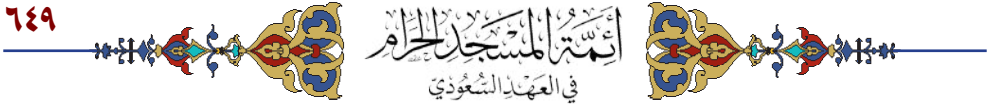 ٦٤٩
أَئِمَّةُ المَسْجِدِ الحَرَامِ
فِي العَهْدِ السُّعُودِيّ